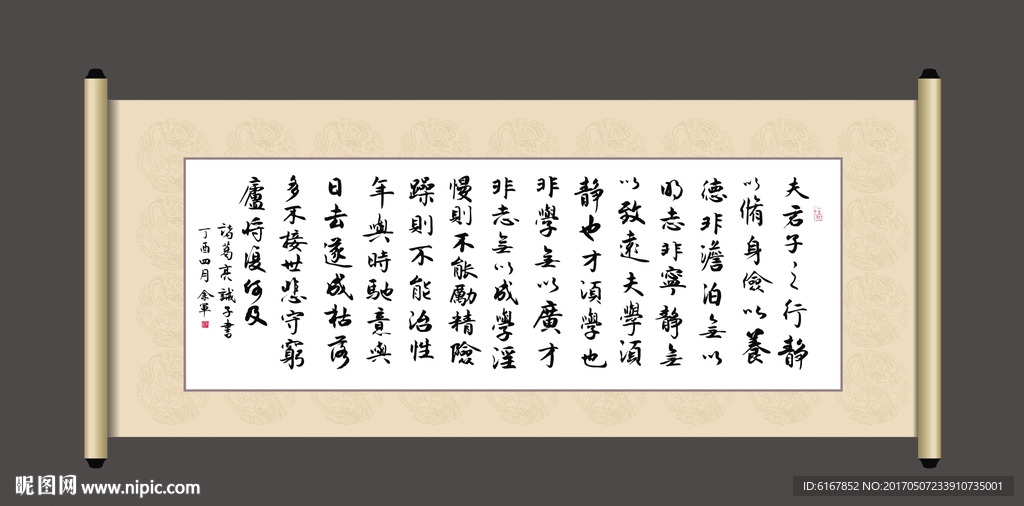 夫君子之行静
以脩身儉以養
德非澹泊無以
明志非寧静無
以致遠夫學須
静也才須學也
非學無以廣才
非志無以成學淫
慢則不能勵精險
躁則不能治性
年與時馳意與
日去遂成枯落
多不接世悲守窮
廬将復何及
諸葛亮誡子書
丁酉四月余軍
昵图网 www.nipic.com
ID:6167852 NO:20170507233910735001